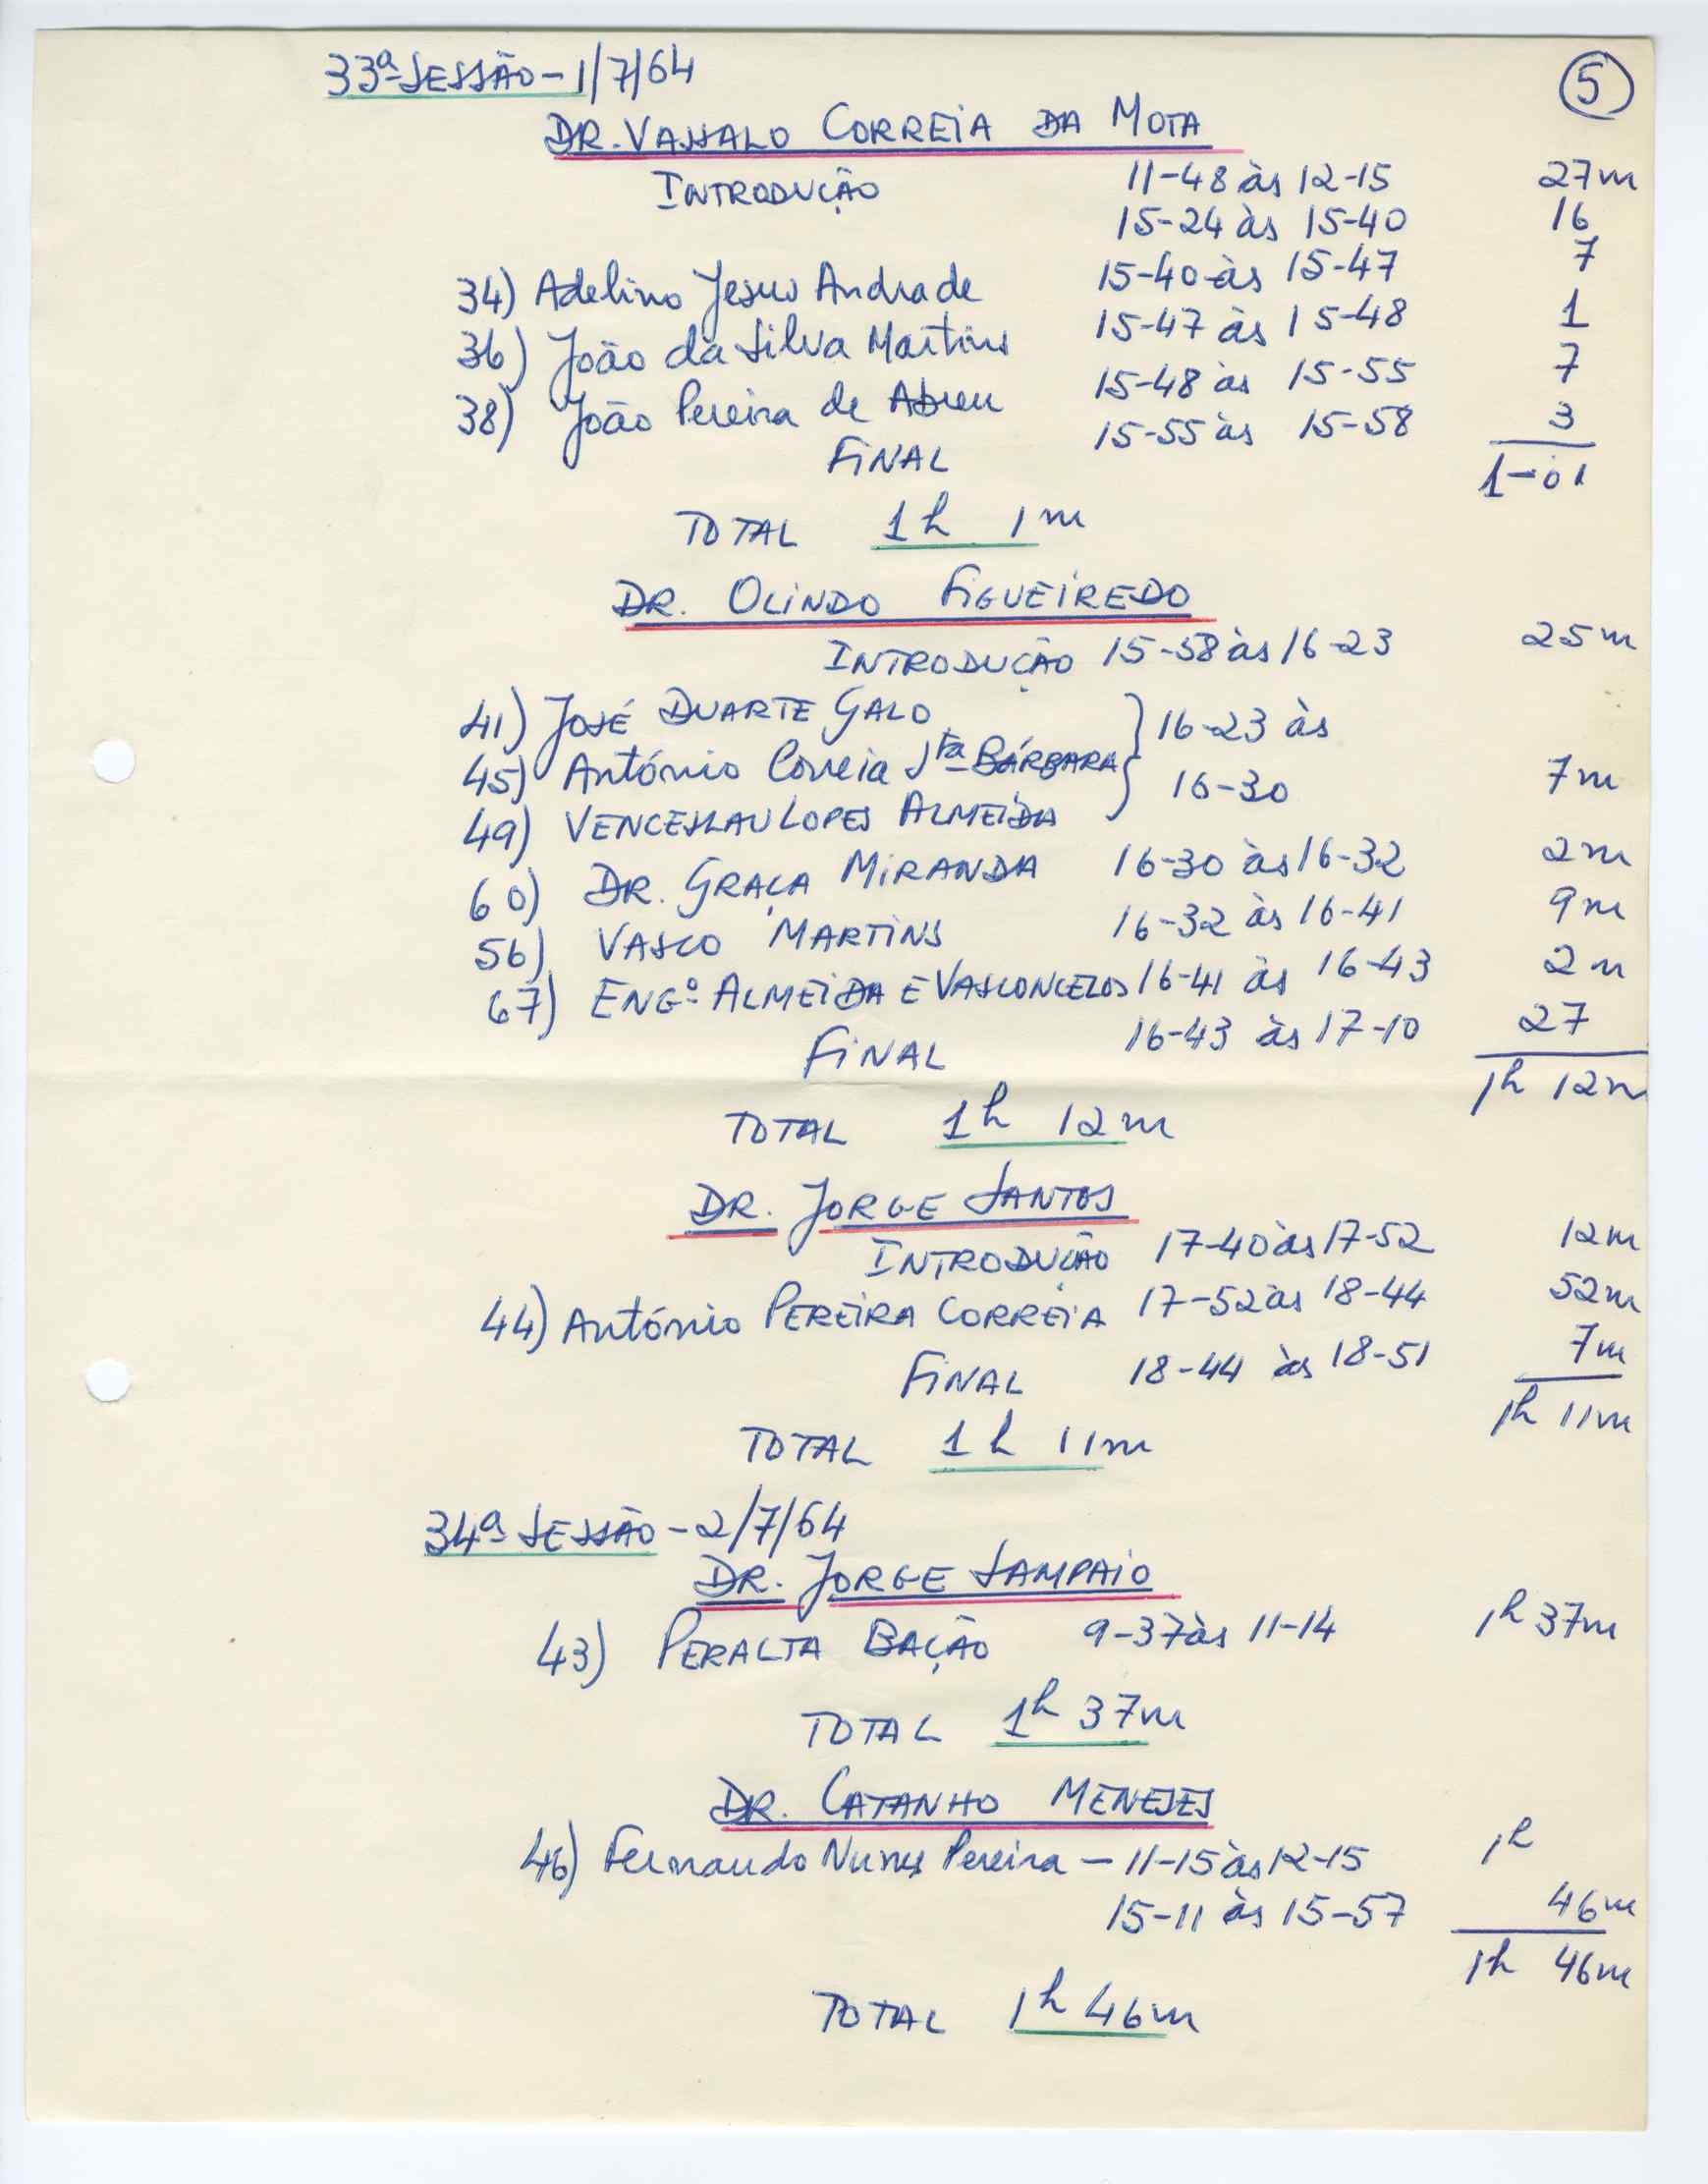 33ª SESSÃO - 1/7/64
5
DR. VASSALO CORREIA DA MOTA
INTRODUÇÃO 11-48 às 12-15 27m
15-24 às 15-40 16
34) Adelino Jesus Andrade 15-40 às 15-47 7
36) João da Silva Martins 15-47 às 15-48 1
38) João Pereira de Abreu 15-48 às 15-55 7
FINAL 15-55 às 15-58 3
1-01
TOTAL 1h 1m
DR. OLINDO FIGUEIREDO
INTRODUÇÃO 15-58 às 16-23 25m
41) JOSÉ DUARTE GALO } 16-23 às
45) António Correia Sta BÁRBARA
49) VENCESLAU LOPES ALMEIDA 16-30 7m
60) DR. GRAÇA MIRANDA 16-30 às 16-32 2m
56) VASCO MARTINS 16-32 às 16-41 9m
67) ENGº ALMEIDA E VASCONCELOS 16-41 às 16-43 2m
FINAL 16-43 às 17-10 27
1h 12m
TOTAL 1h 12m
DR. JORGE SANTOS
INTRODUÇÃO 17-40 às 17-52 12m
44) António PEREIRA CORREIA 17-52 às 18-44 52m
FINAL 18-44 às 18-51 7m
1h 11m
TOTAL 1h 11m
34ª SESSÃO - 2/7/64
DR. JORGE SAMPAIO
43) PERALTA BAÇÃO 9-37 às 11-14 1h 37m
TOTAL 1h 37m
DR. CATANHO MENESES
46) Fernando Nunes Pereira - 11-15 às 12-15 1h
15-11 às 15-57 46m
1h 46m
TOTAL 1h 46m